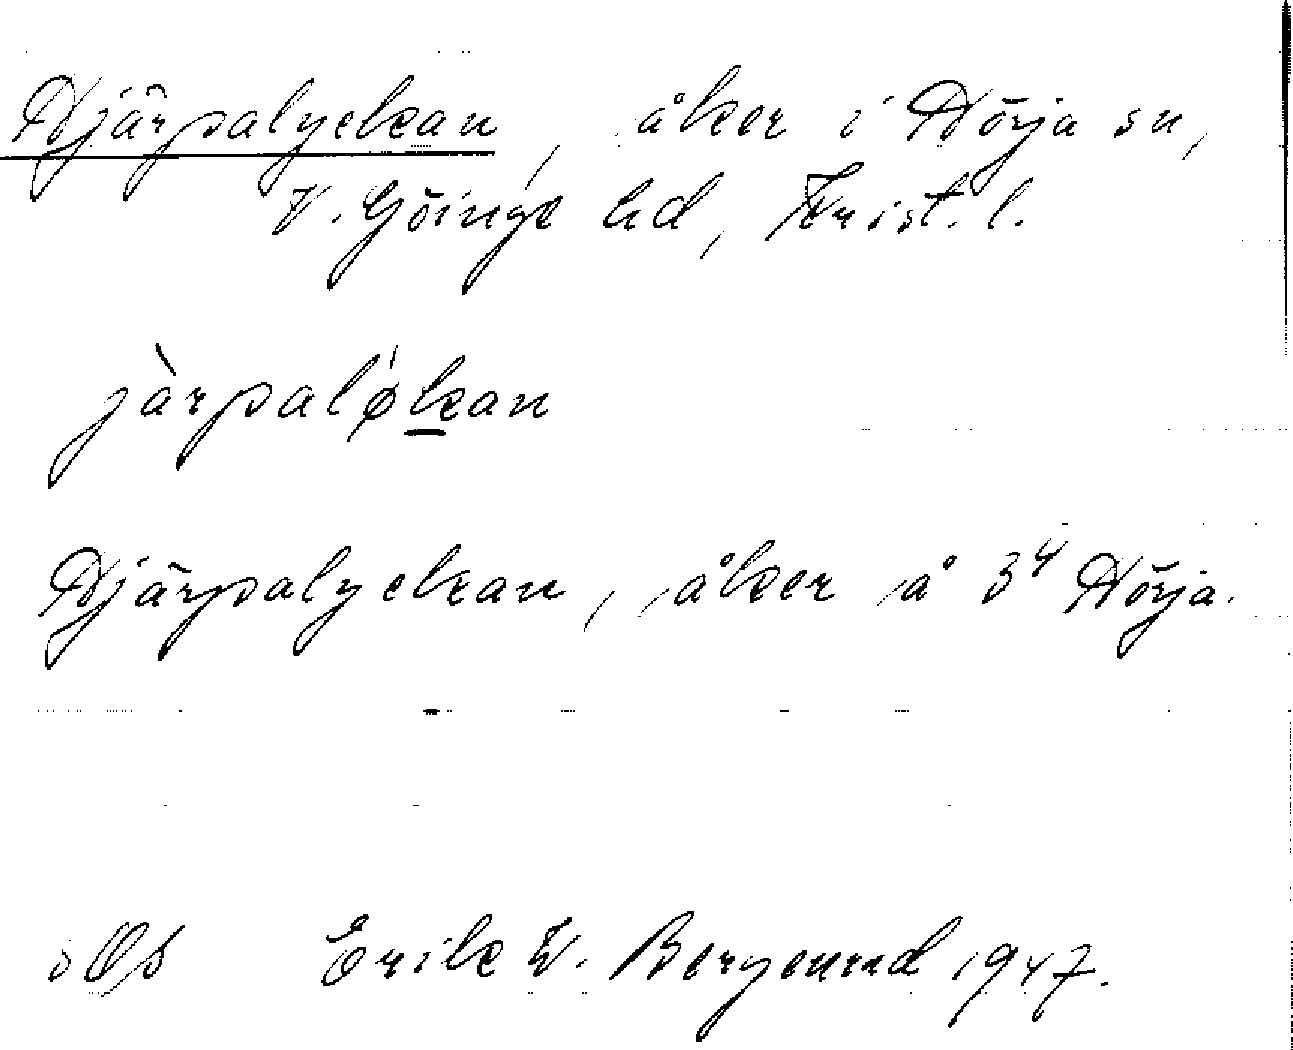 Hjärpalyckan, åker i Hörja sn,
V. Göinge hd, Krist. l.
jàrpaløkan
Hjärpalyckan, åker å 3⁴ Hörja.
Erik W. Bergerund 1947.